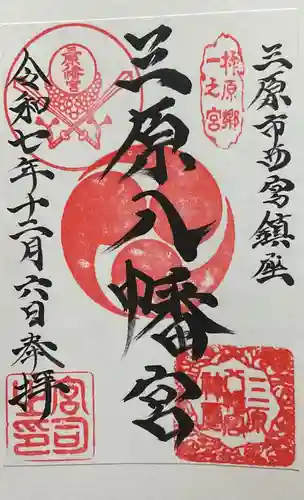 三原市西宮鎮座
柞原郷
一之宮
三原八幡宮
八幡宮
令和七年十二月六日奉拝
三原
八幡宮
宮司
之印